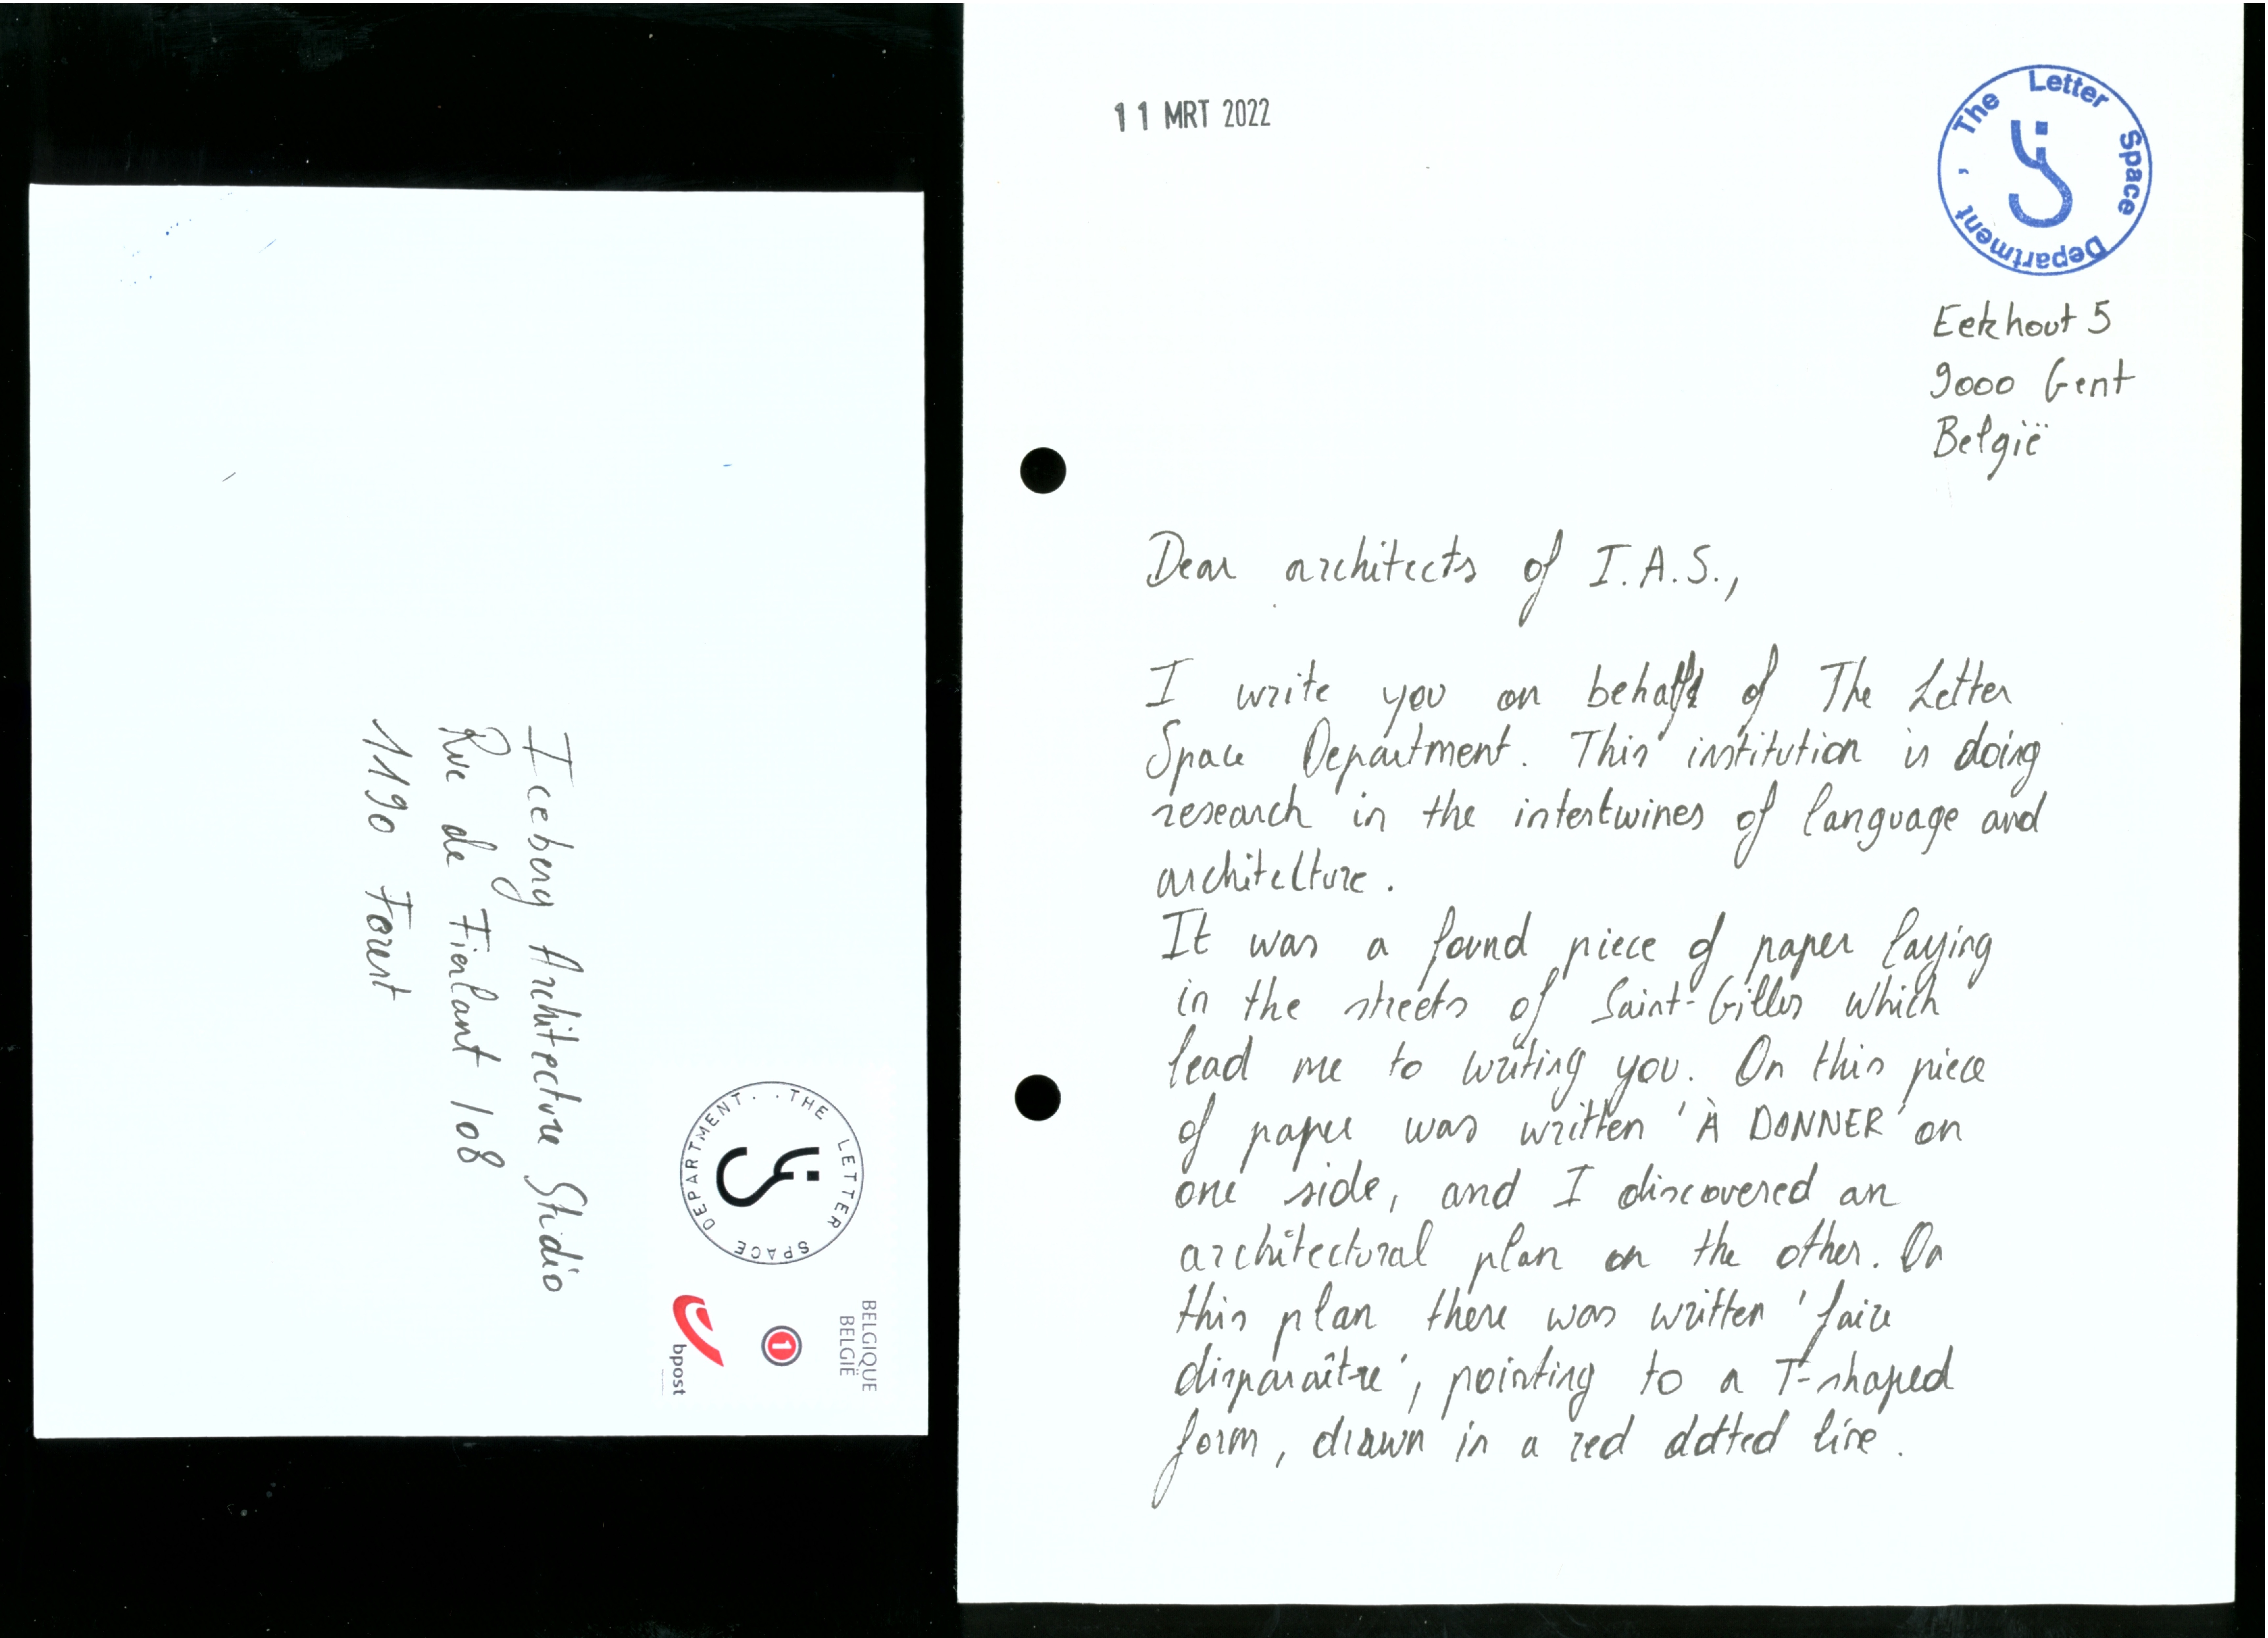 Iceberg Architecture Studio
Rue de Fierlant 108
1190 Forest
. THE LETTER SPACE DEPARTMENT .
BELGIQUE
BELGIË
1
bpost
11 MRT 2022
The Letter Space Department ,
Eekhout 5
9000 Gent
België
Dear architects of I.A.S.,
I write you on behalf of The Letter
Space Department. This institution is doing
research in the intertwines of language and
architecture.
It was a found piece of paper laying
in the streets of Saint-Gilles which
lead me to writing you. On this piece
of paper was written 'À DONNER' on
one side, and I discovered an
architectural plan on the other. On
this plan there was written 'faire
disparaître', pointing to a T-shaped
form, drawn in a red dotted line.